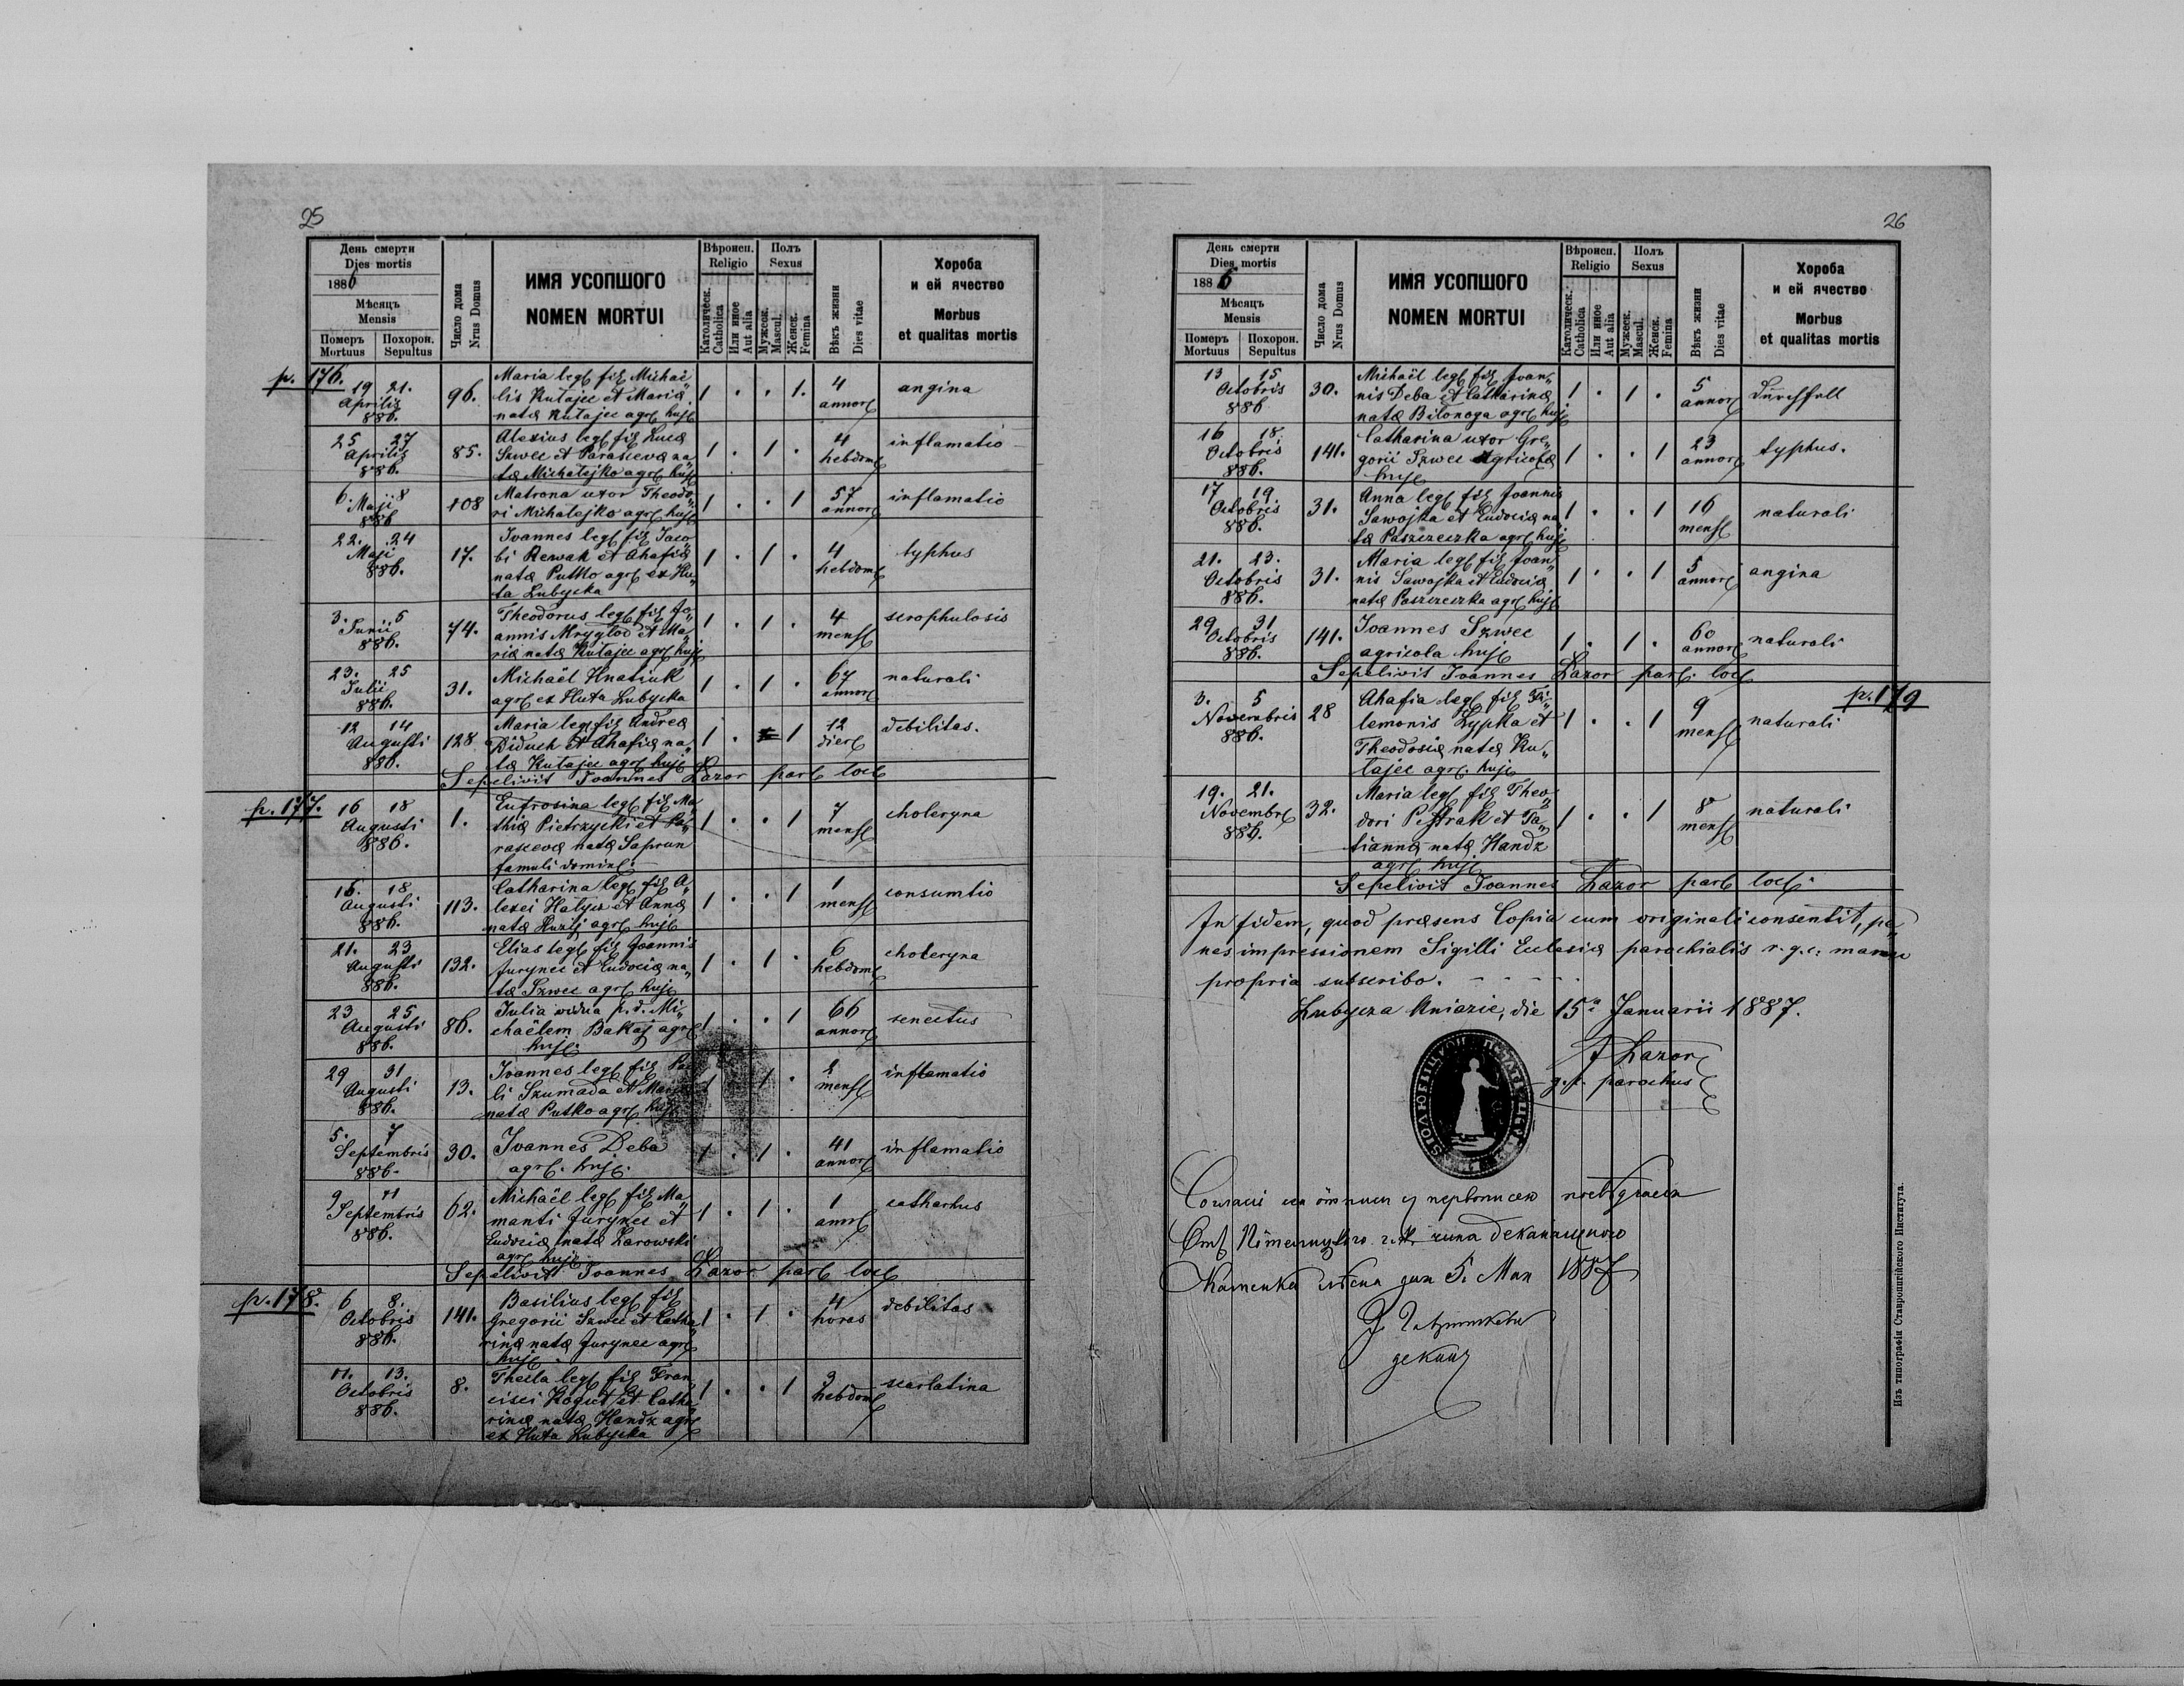 25
День смерти
Dies mortis
1886
Мѣсяцъ
Mensis
Померъ Mortuus
Похорон. Sepultus
Число дома
Nrus Domus
ИМЯ УСОПШОГО
NOMEN MORTUI
Вѣроисп.
Religio
Католическ.
Catholica
Или иное
Aut alia
Полъ
Sexus
Мужеск.
Mascul.
Женск.
Femina
Вѣкъ жизни
Dies vitae
Хороба
и ей ячество
Morbus
et qualitas mortis
p. 176.
19 21. Aprilis 886. 96. Maria leg. fil. Michaë„
lis Kutajec et Maria
nata Kutajec agr. huj. 1 . . 1. 4 annor. angina
25 27 Aprilis 886. 85. Alexius leg. fil. Luca
Szwec et Parasceva na„
ta Michalejko agr. huj. 1 . 1 . 4 hebdom. inflamatio
6. 8 Maji 886 108 Matrona uxor Theodo„
ri Michalejko agr. huj. 1 . . 1 57 annor. inflamatio
22. 24 Maji 886. 17. Ioannes leg. fil. Jaco„
bi Rewak et Ahafia
nata Putko agr. ex Hu„
ta Lubycka 1 . 1 . 4 hebdom. typhus
3. 5 Junii 886. 74. Theodorus leg. fil. Jo„
annis Mryglod et Ma„
ria nata Kutajec agr. huj. 1 . 1 . 4 mens. scrophulosis
23. 25 Julii 886. 31. Michaël Hnatiuk
agr. ex Huta Lubycka 1 . 1 . 67 annor. naturali
12 14 Augusti 886. 128 Maria leg. fil. Andrea
Diduch et Ahafia na„
ta Kutajec agr. huj. 1 . 1 12 dier. debilitas.
Sepelivit Ioannes Lazor par. loc.
p. 177.
16 18 Augusti 886. 1. Eufrosina leg. fil. Ma„
thia Pietrzycki et Pa„
rasceva nata Saprun
famuli domini. 1 . . 1 7 mens. choleryna
16. 18 Augusti 886. 113. Catharina leg. fil. A„
lexei Halycz et Anna
nata agr. huj. 1 . . 1 1 mens. consumtio
21. 23 Augusti 886. 132. Elias leg. fil. Joannis
Jurynec et Eudocia na„
ta Szwec agr. huj. 1 . 1 . 6 hebdom. choleryna
23 25 Augusti 886. 86. Julia vidua p. d. Mi„
chaëlem Bakaj agr.
huj. 1 . . 1 66 annor. senectus
29 31 Augusti 886. 13. Ioannes leg. fil. Pa„
li Szumada et Maria
nata Putko agr. huj. 1 1 . mens. inflamatio
5. 7 Septembris 886. 30. Ioannes Deba
agr. huj. 1 . 1 . 41 annor. inflamatio
9 11 Septembris 886. 62. Michaël leg. fil. Ma„
manti Jurynec et
Eudocia nata Zarowski
agr. huj. 1 . 1 . 1 ann. catharhus
Sepelivit Ioannes Lazor par. loc.
p. 178.
6 8. Octobris 886. 141. Basilius leg. fil.
Gregorii Szwec et Catha„
rina nata Jurynec agr.
huj. 1 . 1 . 4 horas debilitas
11. 13. Octobris 886. 8. Thecla leg. fil. Fran„
cisci Kogut et Catha„
rina nata Handz agr.
ex Huta Lubycka 1 . . 1 3 hebdom. scarlatina
26
День смерти
Dies mortis
1886
Мѣсяцъ
Mensis
Померъ Mortuus
Похорон. Sepultus
Число дома
Nrus Domus
ИМЯ УСОПШОГО
NOMEN MORTUI
Вѣроисп.
Religio
Католическ.
Catholica
Или иное
Aut alia
Полъ
Sexus
Мужеск.
Mascul.
Женск.
Femina
Вѣкъ жизни
Dies vitae
Хороба
и ей ячество
Morbus
et qualitas mortis
13 15 Octobris 886 30. Michaël leg. fil. Joan„
nis Deba et Catharina
nata Bilonoga agr. huj. 1 . 1 . 5 annor. Durchfall
16 18 Octobris 886. 141. Catharina uxor Gre„
gorii Szwec agricola
huj. 1 . . 1 23 annor. typhus.
17 19. Octobris 886. 31. Anna leg. fil. Joannis
Sawojka et Eudocia na„
ta Paszczeczka agr. huj. 1 . . 1 16 mens. naturali
21. 23. Octobris 886. 31. Maria leg. fil. Joan„
nis Sawojka et Eudocia
nata Paszczeczka agr. huj. 1 . . 1 5 annor. angina
29 31 Octobris 886. 141. Ioannes Szwec
agricola huj. 1 . 1 . 60 annor. naturali
Sepelivit Ioannes Lazor par. loc.
p. 179
3. 5 Novembris 886. 28 Ahafia leg. fil. Fi„
lemonis Lypka et
Theodosia nata Ku„
tajec agr. huj. 1 . . 1 9 mens. naturali
19. 21. Novembr. 886. 32. Maria leg. fil. Theo„
dori Pestrak et Ta„
tianna nata Handz
agr. huj. 1 . . 1 8 mens. naturali
Sepelivit Ioannes Lazor par. loc.
In fidem, quod præsens Copia cum originali consentit, pe„
nes impressionem Sigilli Eclesiæ parochialis r. g. c. manu
propria subscribo. - - - - -
Lubycza Kniazie, die 15ª Januarii 1887.
J Lazor
g. r. parochus
5. Мая 1887
декан
Изъ типографіи Ставропигійского Института.